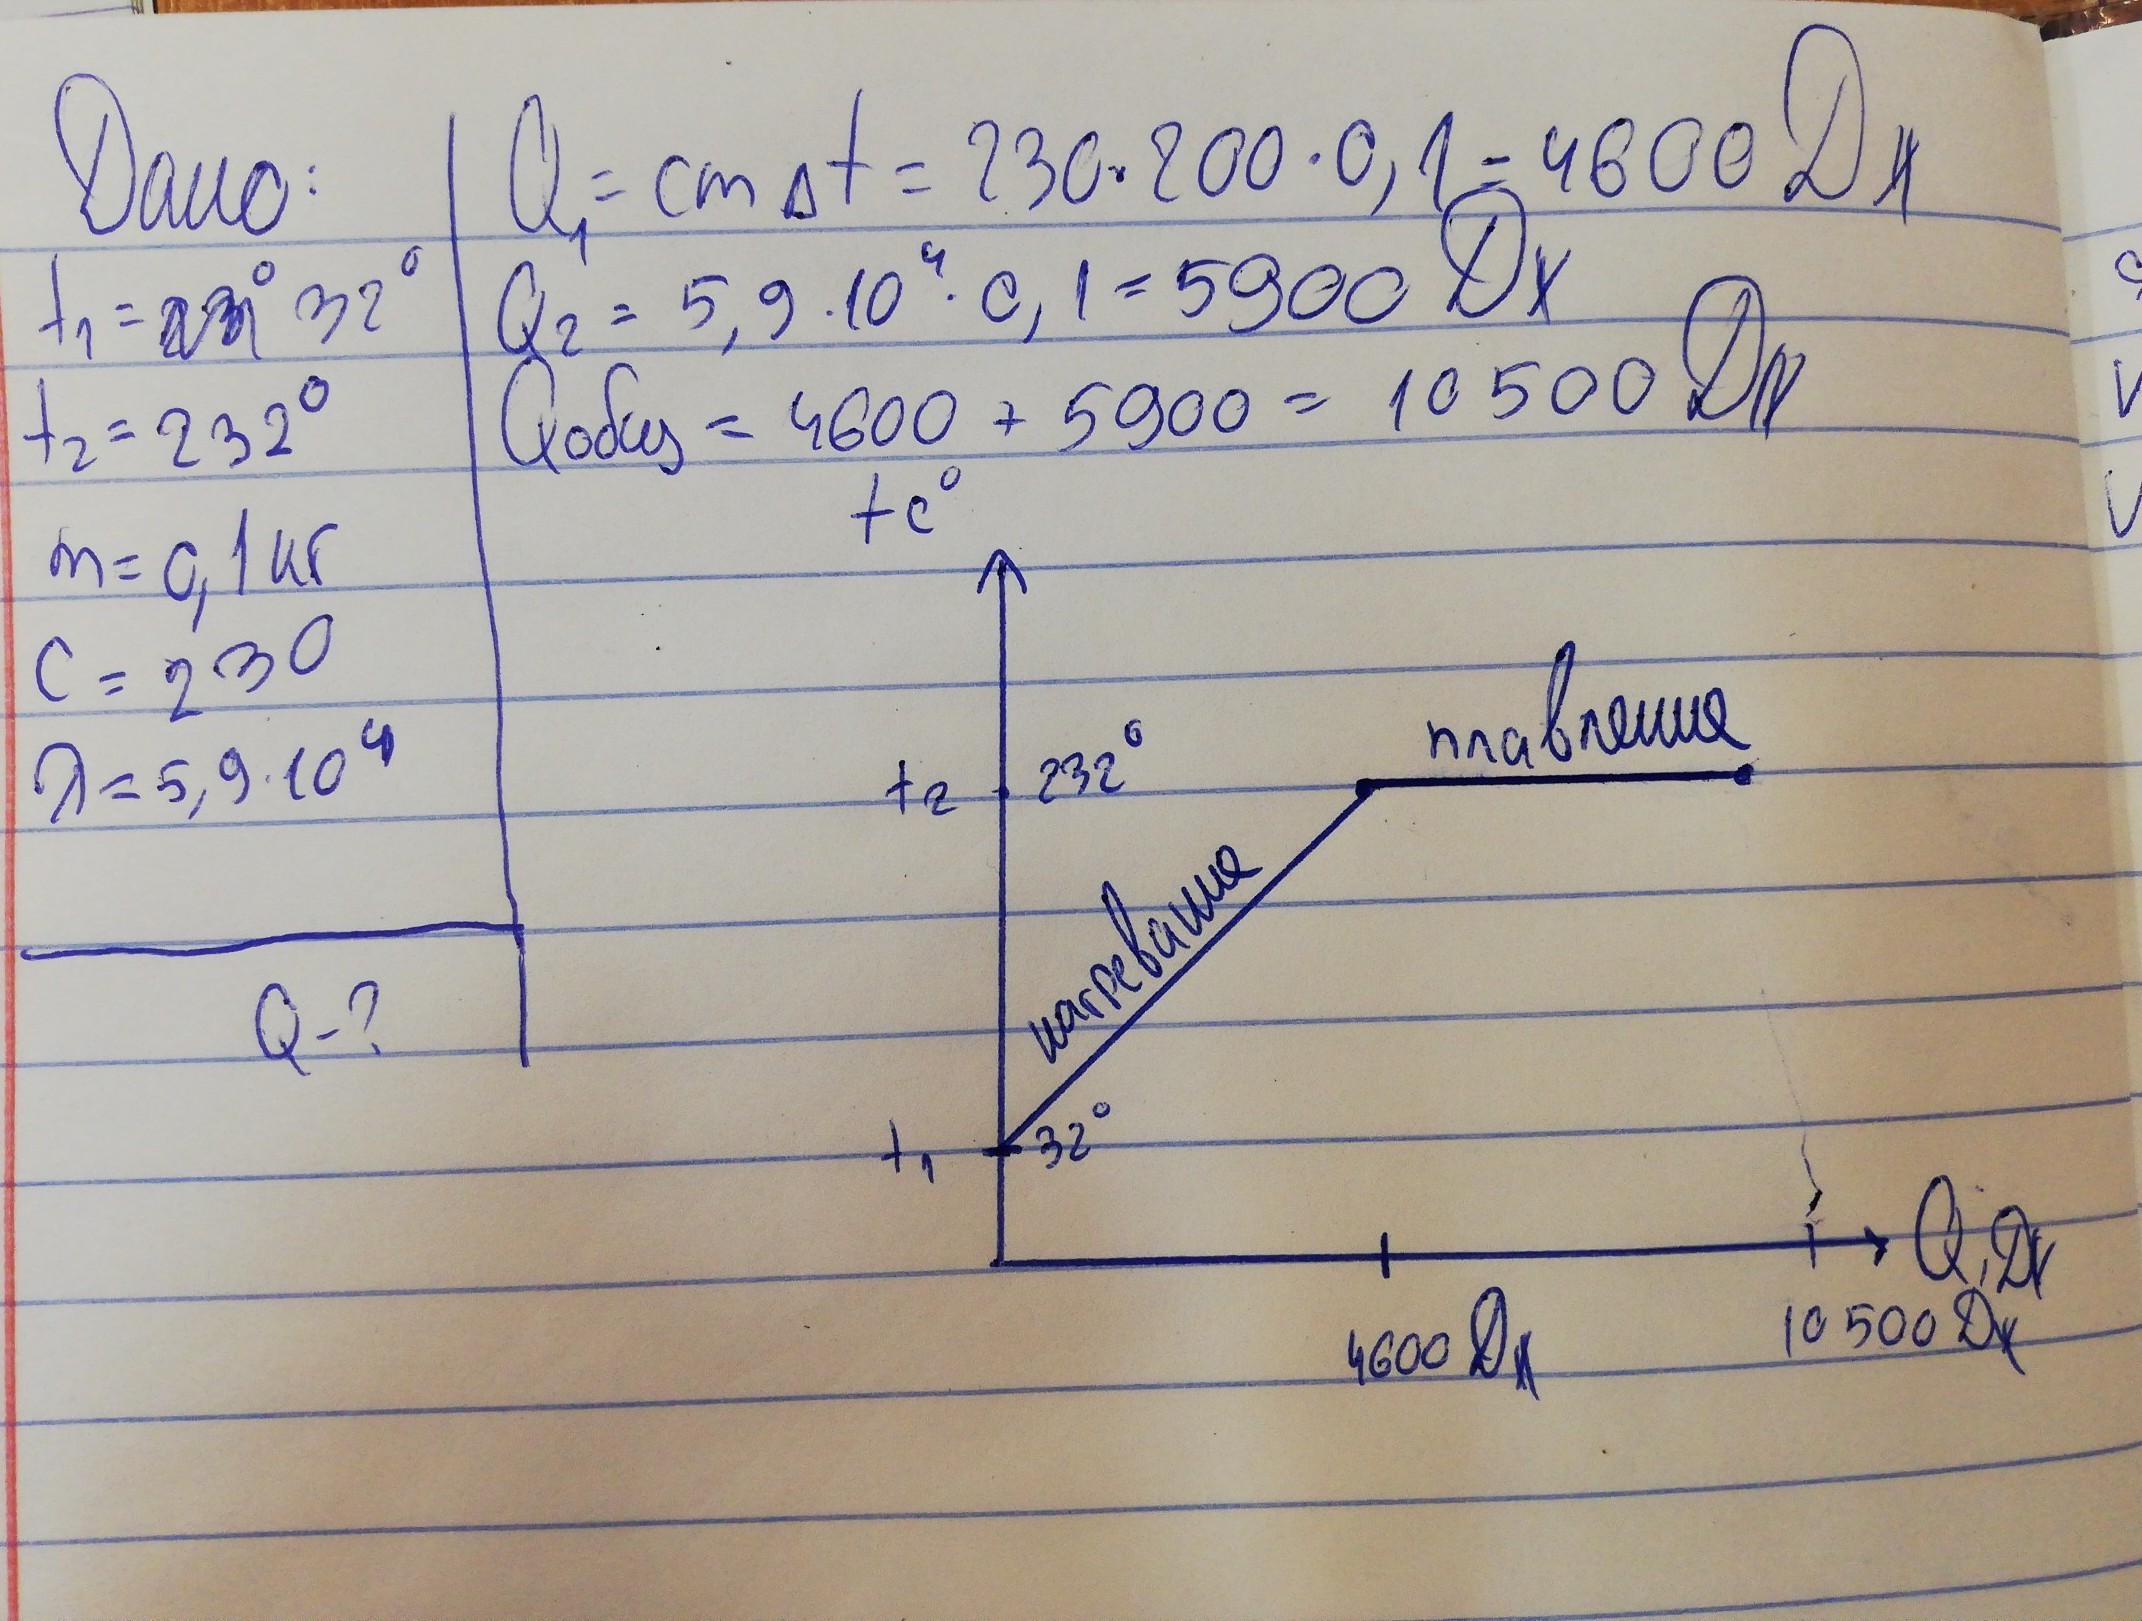 Дано:
t₁ = 32°
t₂ = 232°
m = 0,1 кг
c = 230
λ = 5,9·10⁴
Q-?
Q₁ = cmΔt = 230·200·0,1 = 4600 Дж
Q₂ = 5,9·10⁴·0,1 = 5900 Дж
Qобщ = 4600 + 5900 = 10 500 Дж
tc°
t₂ 232°
плавление
нагревание
t₁ 32°
Q, Дж
4600 Дж
10 500 Дж